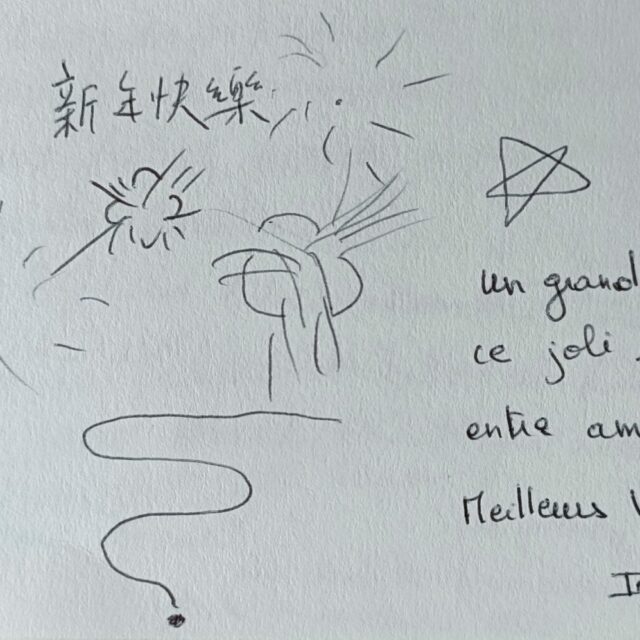 新年快樂
un grand
ce joli
entre am
Meilleurs